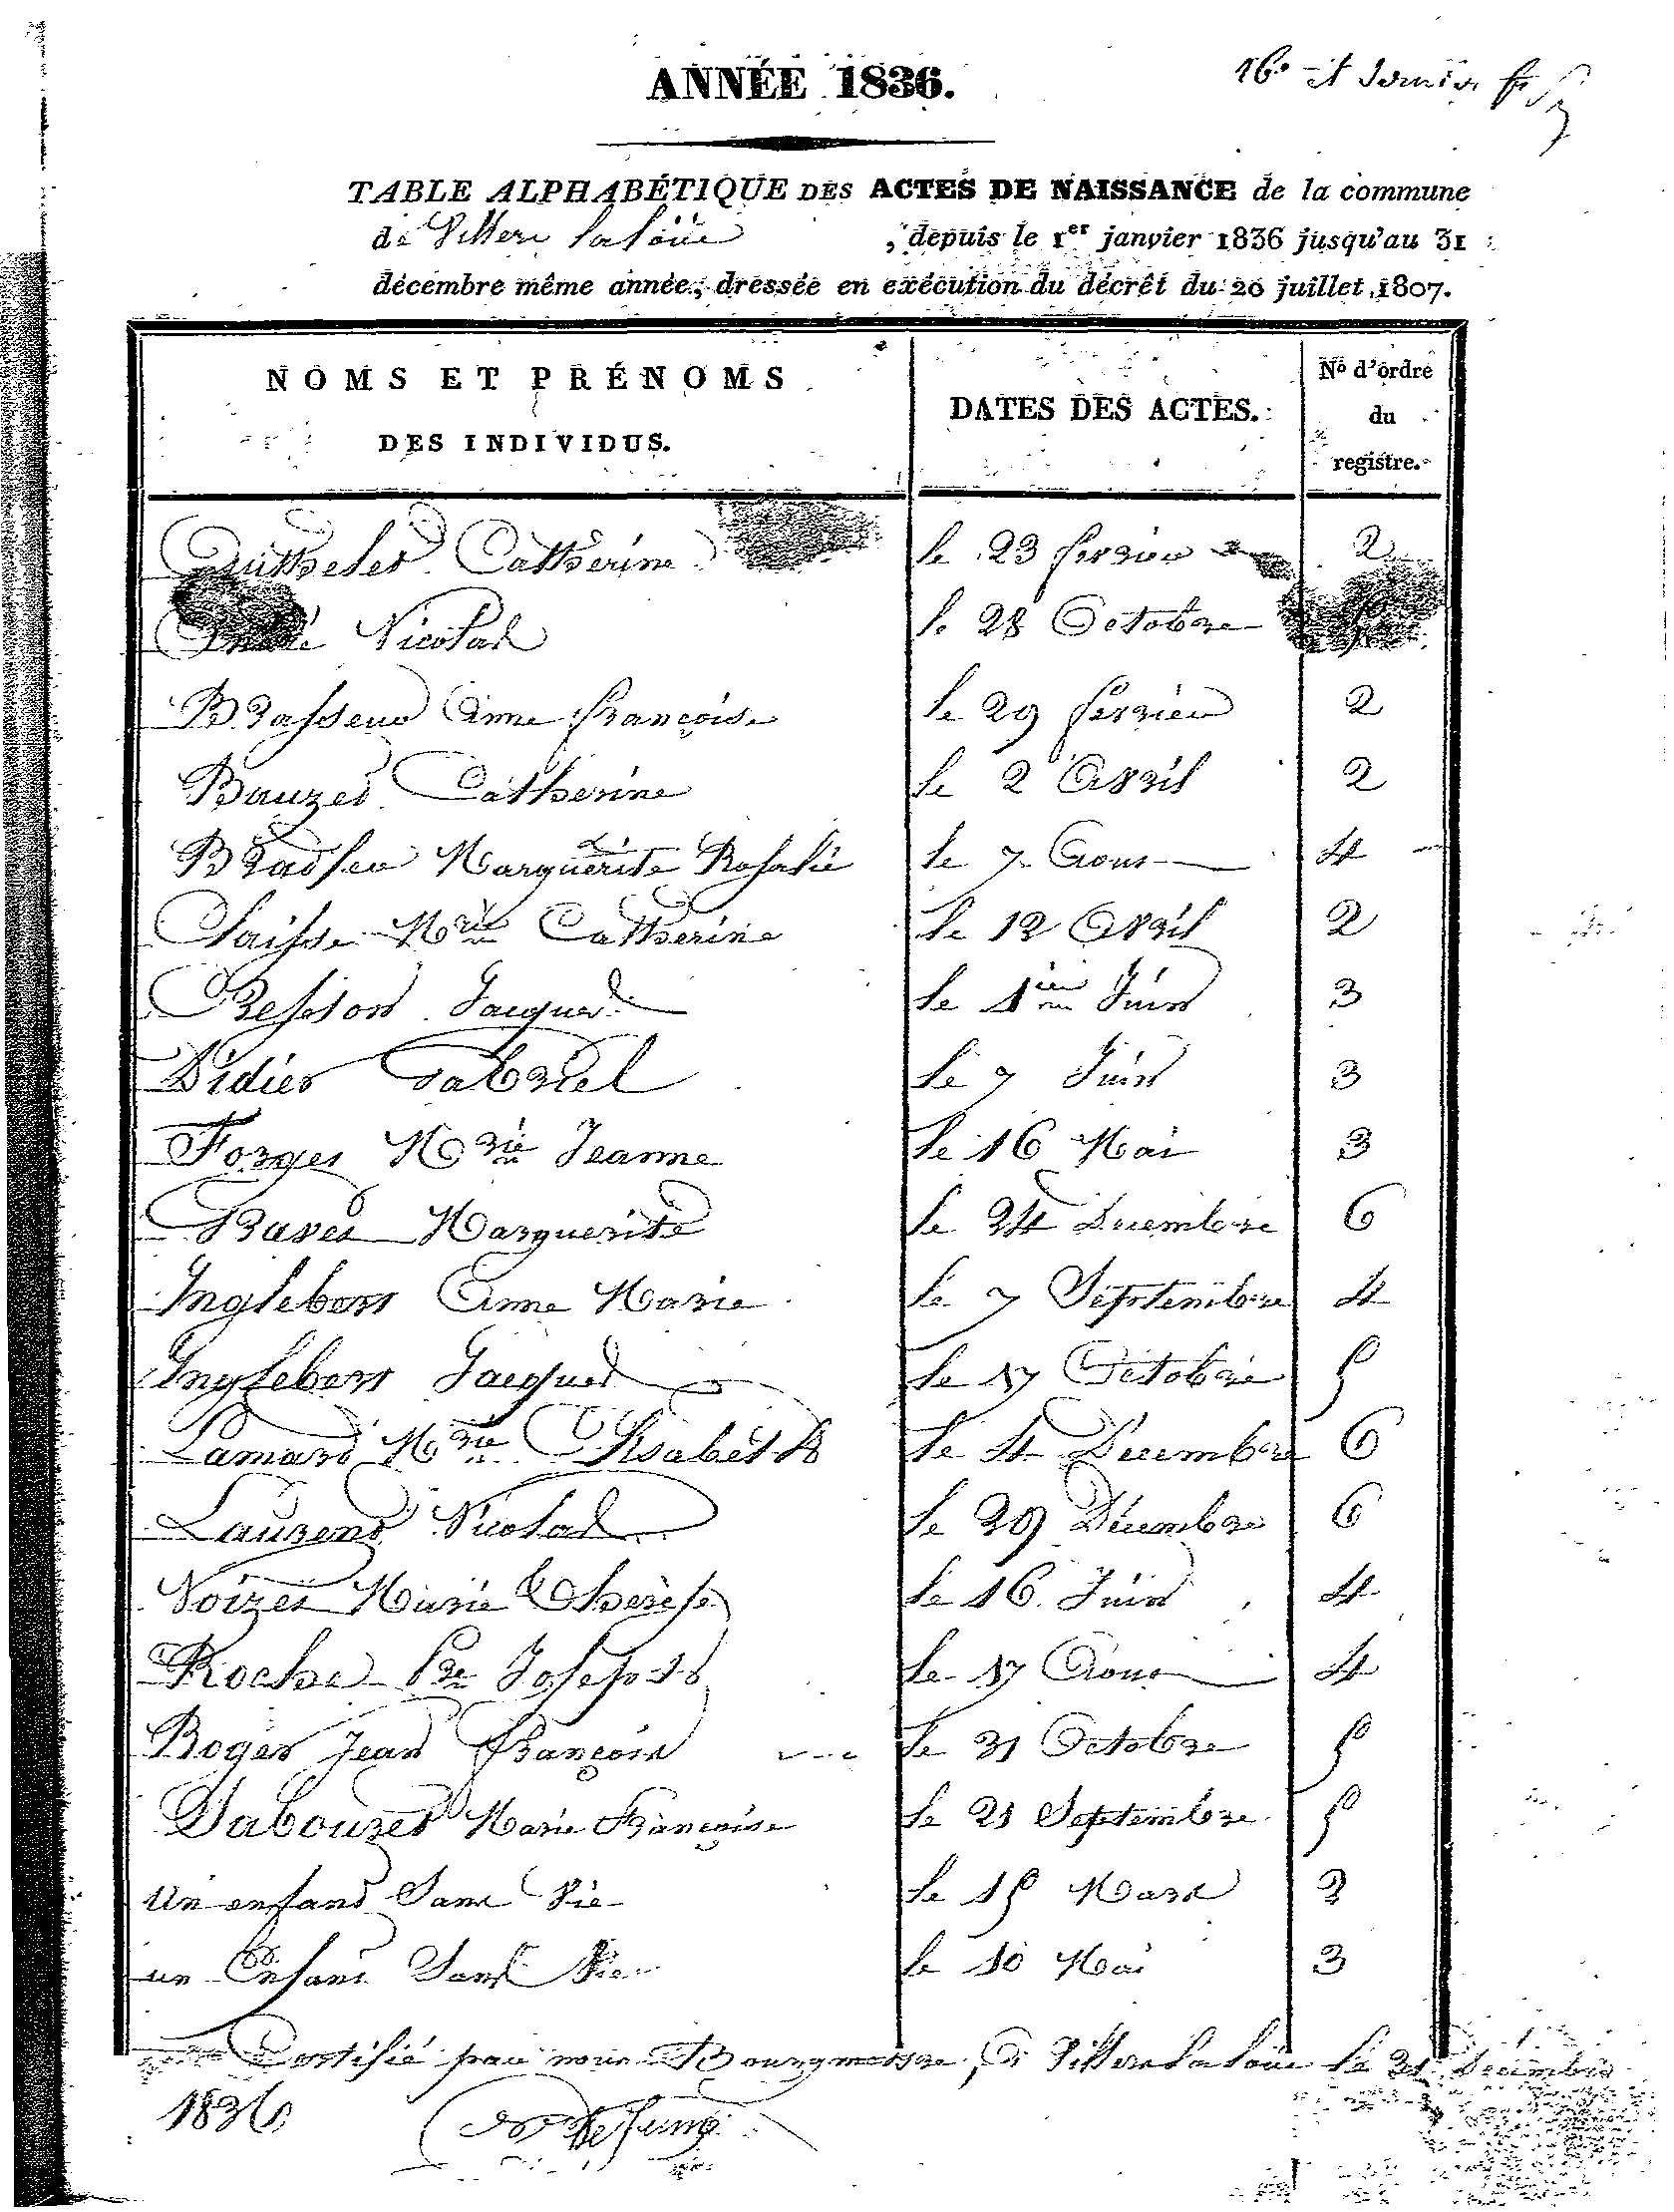 ANNÉE 1836.
16e et dernier f
TABLE ALPHABÉTIQUE DES ACTES DE NAISSANCE de la commune
de Villers la loüe , depuis le 1er janvier 1836 jusqu'au 31
décembre même année, dressée en exécution du décrêt du 20 juillet 1807.
NOMS ET PRÉNOMS
DES INDIVIDUS.
DATES DES ACTES.
No d'ordre
du
registre.
Catherine le 23 fevrier 2
Nicolas le 28 Octobre
Brasseur Anne françoise le 29 fevrier 2
Bauzet Catherine le 2 Avril 2
Marguerite Rosalie le 7 Aout 4
Claisse Mrie Catherine le 12 Avril 2
Cresson Jacques le 1ier Juin 3
Didier Gabriel le 7 Juin 3
Forget Mrie Jeanne le 16 Mai 3
Marguerite le 24 Decembre 6
Inglebert Anne Marie le 7 Septembre 4
Inglebert Jacques le 17 Octobre 5
Lamard Mrie Elisabeth le 4 Decembre 6
Laurent Nicolas le 29 Décembre 6
Noizet Marie Therese le 16 Juin 4
Roche Joseph le 17 Aout 4
Roger Jean François le 31 Octobre 5
Dabouzet Marie Françoise le 21 Septembre 5
un enfant Sans Vie le 15 Mars 2
un Enfant Sans Vie le 10 Mai 3
Certifié par nous Bourgmestre à Villers la loüe le 31 Decembre
1836